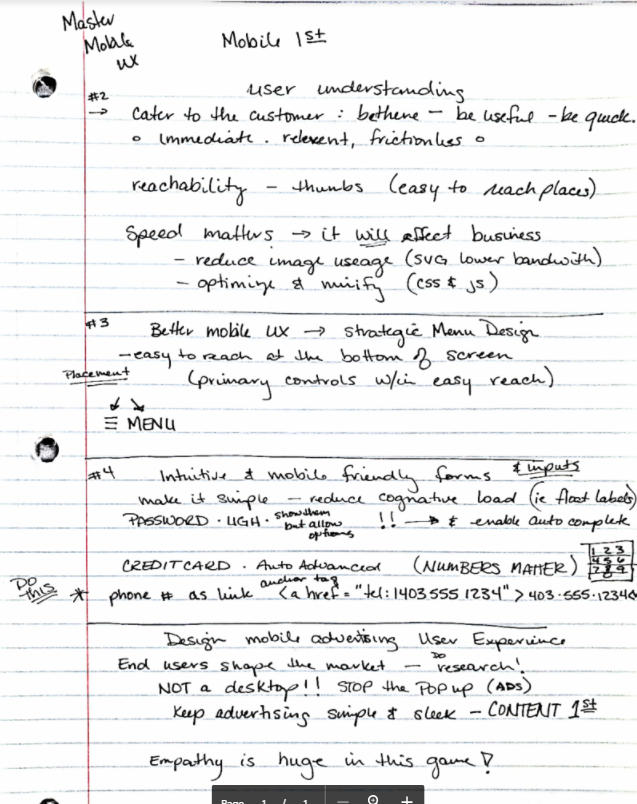 Master
Mobile
UX
Mobile 1st
#2
user understanding
→ Cater to the customer : bethere – be useful – be quick.
○ Immediate . relevent, frictionless ○
reachability – thumbs (easy to reach places)
Speed matters → it will effect business
– reduce image useage (SVG lower bandwith)
– optimize & minify (CSS & JS)
#3
Better mobile UX → strategic Menu Design
– easy to reach at the bottom of screen
Placement
(primary controls w/in easy reach)
☰ MENU
#4 Intuitive & mobile friendly forms & inputs
make it simple – reduce cognative load (ie float labels)
PASSWORD · UGH · show them but allow options !! → & enable auto complete
CREDIT CARD · Auto Advanced (NUMBERS MATTER)
1 2 3
4 5 6
7 8 9
0
DO THIS * phone # as link anchor tag <a href="tel:14035551234">403·555·1234<
Design mobile advertising User Experience
End users shape the market – DO research!
NOT a desktop!! STOP the Pop up (ADS)
Keep advertising simple & sleek – CONTENT 1st
Empathy is huge in this game!
Page 1 / 1 – +